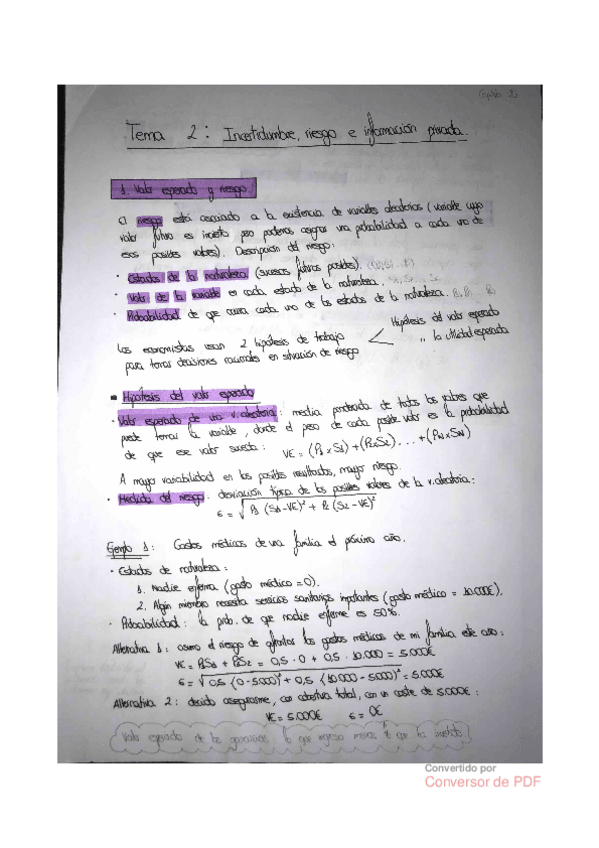 Capítulo 2
Tema 2: Incertidumbre, riesgo e información privada.
1. Valor esperado y riesgo.
El riesgo está asociado a la existencia de variables aleatorias (variable cuyo
valor futuro es incierto pero podemos asignar una probabilidad a cada uno de
esos posibles valores). Descripción del riesgo:
· Estados de la naturaleza (sucesos futuros posibles).
· Valor de la variable en cada estado de la naturaleza.
· Probabilidad de que ocurra cada uno de los estados de la naturaleza.
Los economistas usan 2 hipótesis de trabajo
para tomar decisiones racionales en situación de riesgo
Hipótesis del valor esperado
,, la utilidad esperada
Hipótesis del valor esperado
· Valor esperado de una v.aleatoria: media ponderada de todos los valores que
puede tomar la variable, donde el peso de cada posible valor es la probabilidad
de que ese valor suceda: VE = (P1 x S1) + (P2 x S2) ... + (PN x SN)
A mayor variabilidad en los posibles resultados, mayor riesgo.
· Medida del riesgo: desviación típica de los posibles valores de la v.aleatoria:
σ = √P1 (S1-VE)² + P2 (S2-VE)²
Ejemplo 1: Gastos médicos de una familia el próximo año.
· Estados de naturaleza:
1. Nadie enferma (gasto médico = 0).
2. Algún miembro necesita servicios sanitarios importantes (gasto médico = 10.000€).
· Probabilidad: la prob. de que nadie enferme es 50%.
Alternativa 1: asumo el riesgo de afrontar los gastos médicos de mi familia este año:
VE = P1S1 + P2S2 = 0,5 · 0 + 0,5 · 10.000 = 5.000€
σ = √0,5 (0-5000)² + 0,5 (10.000 - 5000)² = 5.000€
Alternativa 2: decido asegurarme, con cobertura total, con un coste de 5.000€:
VE = 5.000€ σ = 0€
Valor esperado de las ganancias: lo que ingreso menos lo que he invertido.
Convertido por
Conversor de PDF